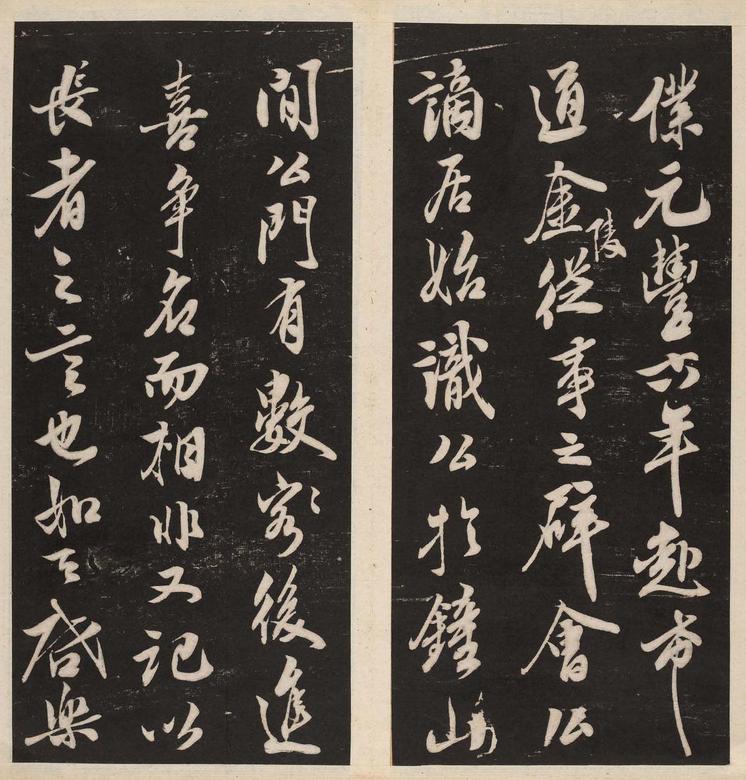 僕元豐六年赴希
道金陵從事之辟會公
謫居始識公於鍾山
間公門有數客〻後進
喜爭名而相非又記以
長者之言也如啓樂